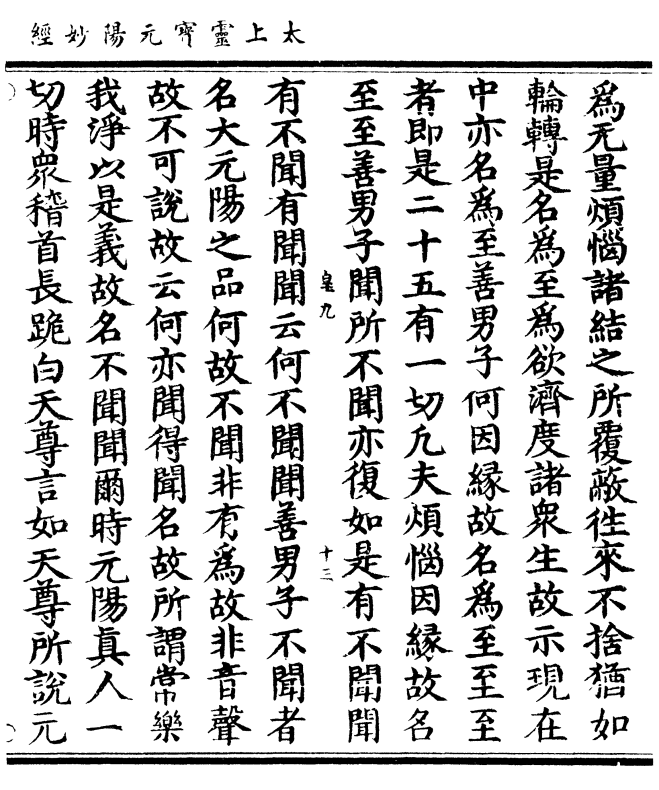 太上靈寶元陽妙經
爲无量煩惱諸結之所覆蔽徃來不捨猶如
輪轉是名爲至爲欲濟度諸衆生故示現在
中亦名爲至善男子何因緣故名爲至至至
者即是二十五有一切凢夫煩惱因緣故名
至至善男子聞所不聞亦復如是有不聞聞
皇九
十三
有不聞有聞聞云何不聞聞善男子不聞者
名大元陽之品何故不聞非有爲故非音聲
故不可說故云何亦聞得聞名故所謂常樂
我淨以是義故名不聞聞爾時元陽真人一
切時衆稽首長跪白天尊言如天尊所說元